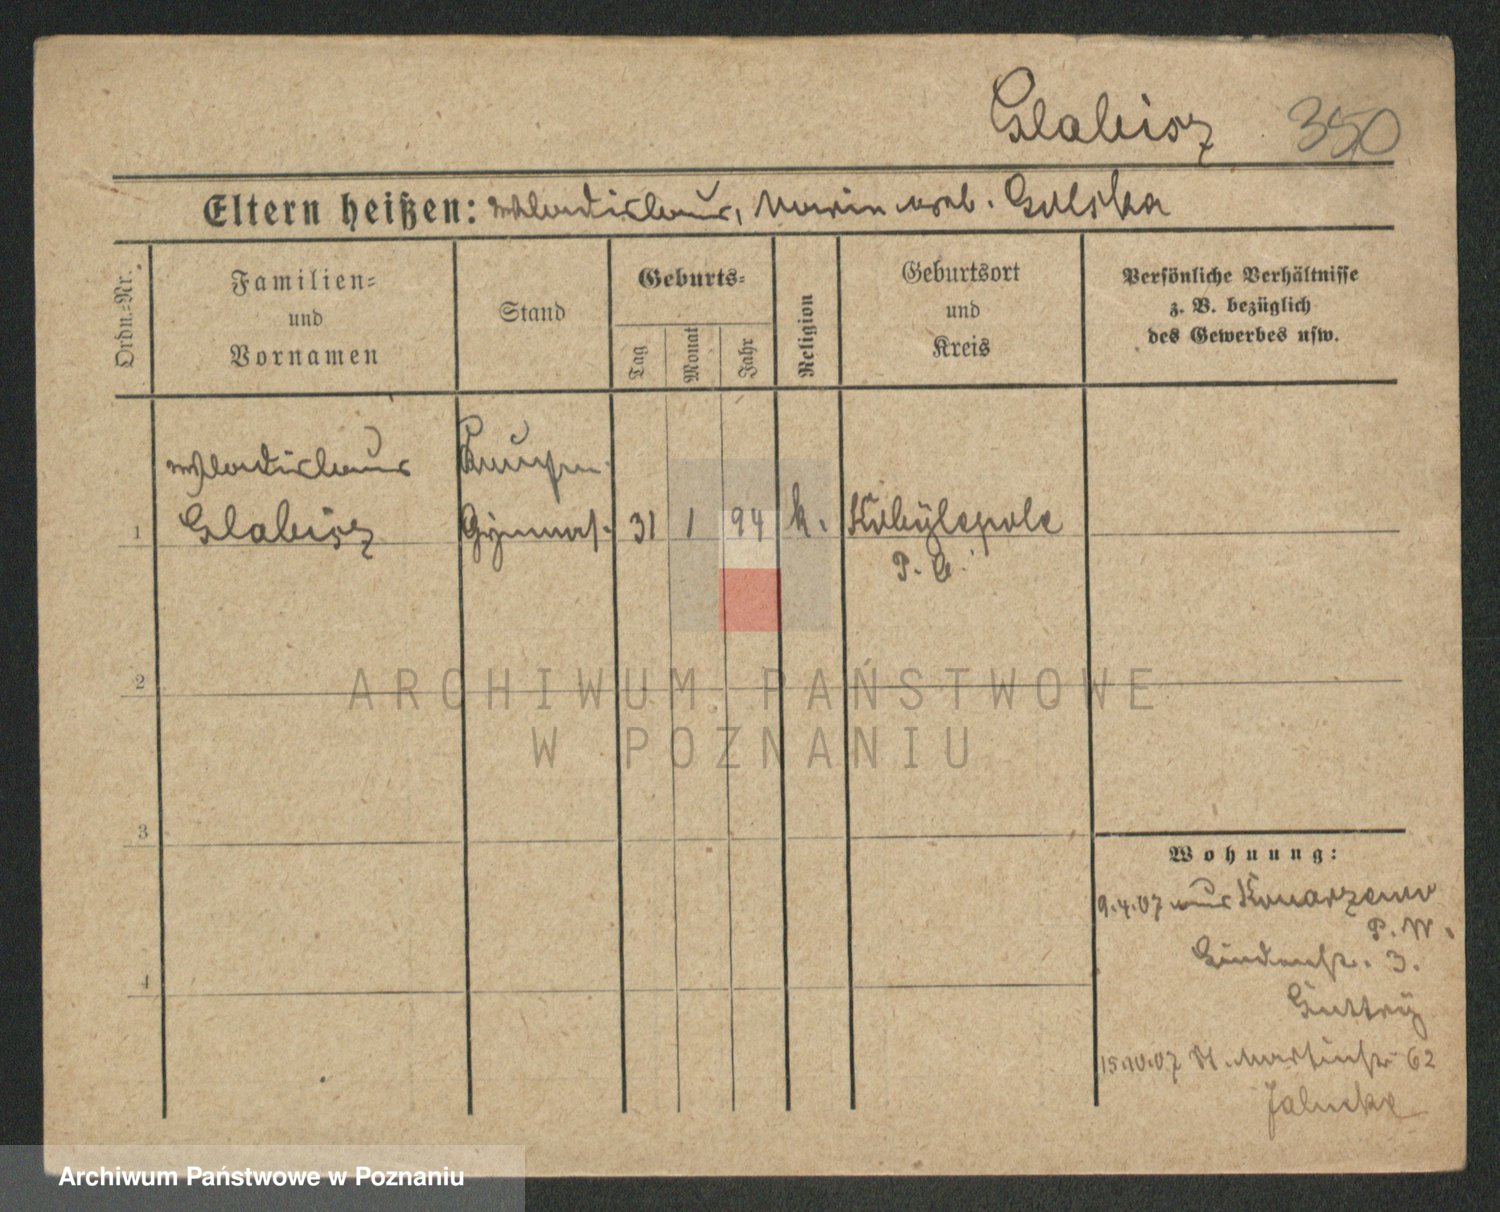 Glabisz 350
Eltern heißen: Wladislaus, Maria geb. Gulska
Ordn.-Nr.
Familien-
und
Vornamen
Stand
Geburts-
Tag
Monat
Jahr
Religion
Geburtsort
und
Kreis
Persönliche Verhältnisse
z. B. bezüglich
des Gewerbes usw.
Wladislaus
Glabisz
1
Gymnas.
31 1 94 k. Kobylepole
P. O.
2
3
4
Wohnung:
9.4.07 aus Konarzewo
P. W.
Lindenstr. 3.
15.10.07 St. Martinstr 62
ARCHIWUM PAŃSTWOWE
W POZNANIU
Archiwum Państwowe w Poznaniu